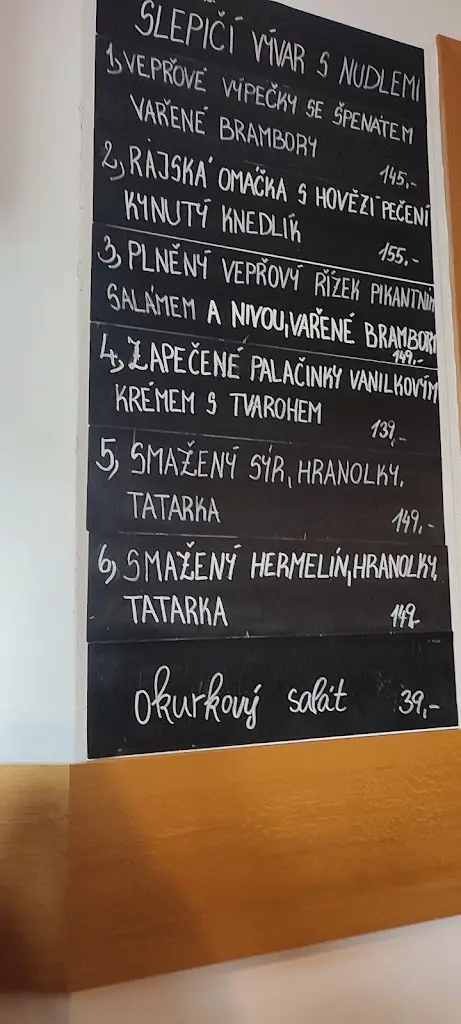 SLEPIČÍ VÝVAR S NUDLEMI
1, VEPŘOVÉ VÝPEČKY SE ŠPENÁTEM
VAŘENÉ BRAMBORY
145,-
2, RAJSKÁ OMAČKA S HOVĚZÍ PEČENÍ
KYNUTÝ KNEDLÍK
155,-
3, PLNĚNÝ VEPŘOVÝ ŘÍZEK PIKANTNÍM
SALÁMEM A NIVOU, VAŘENÉ BRAMBORY
149,-
4, ZAPEČENÉ PALAČINKY VANILKOVÝM
KRÉMEM S TVAROHEM
139,-
5, SMAŽENÝ SÝR, HRANOLKY,
TATARKA 149,-
6, SMAŽENÝ HERMELÍN, HRANOLKY,
TATARKA 149-
okurkový salát 39,-